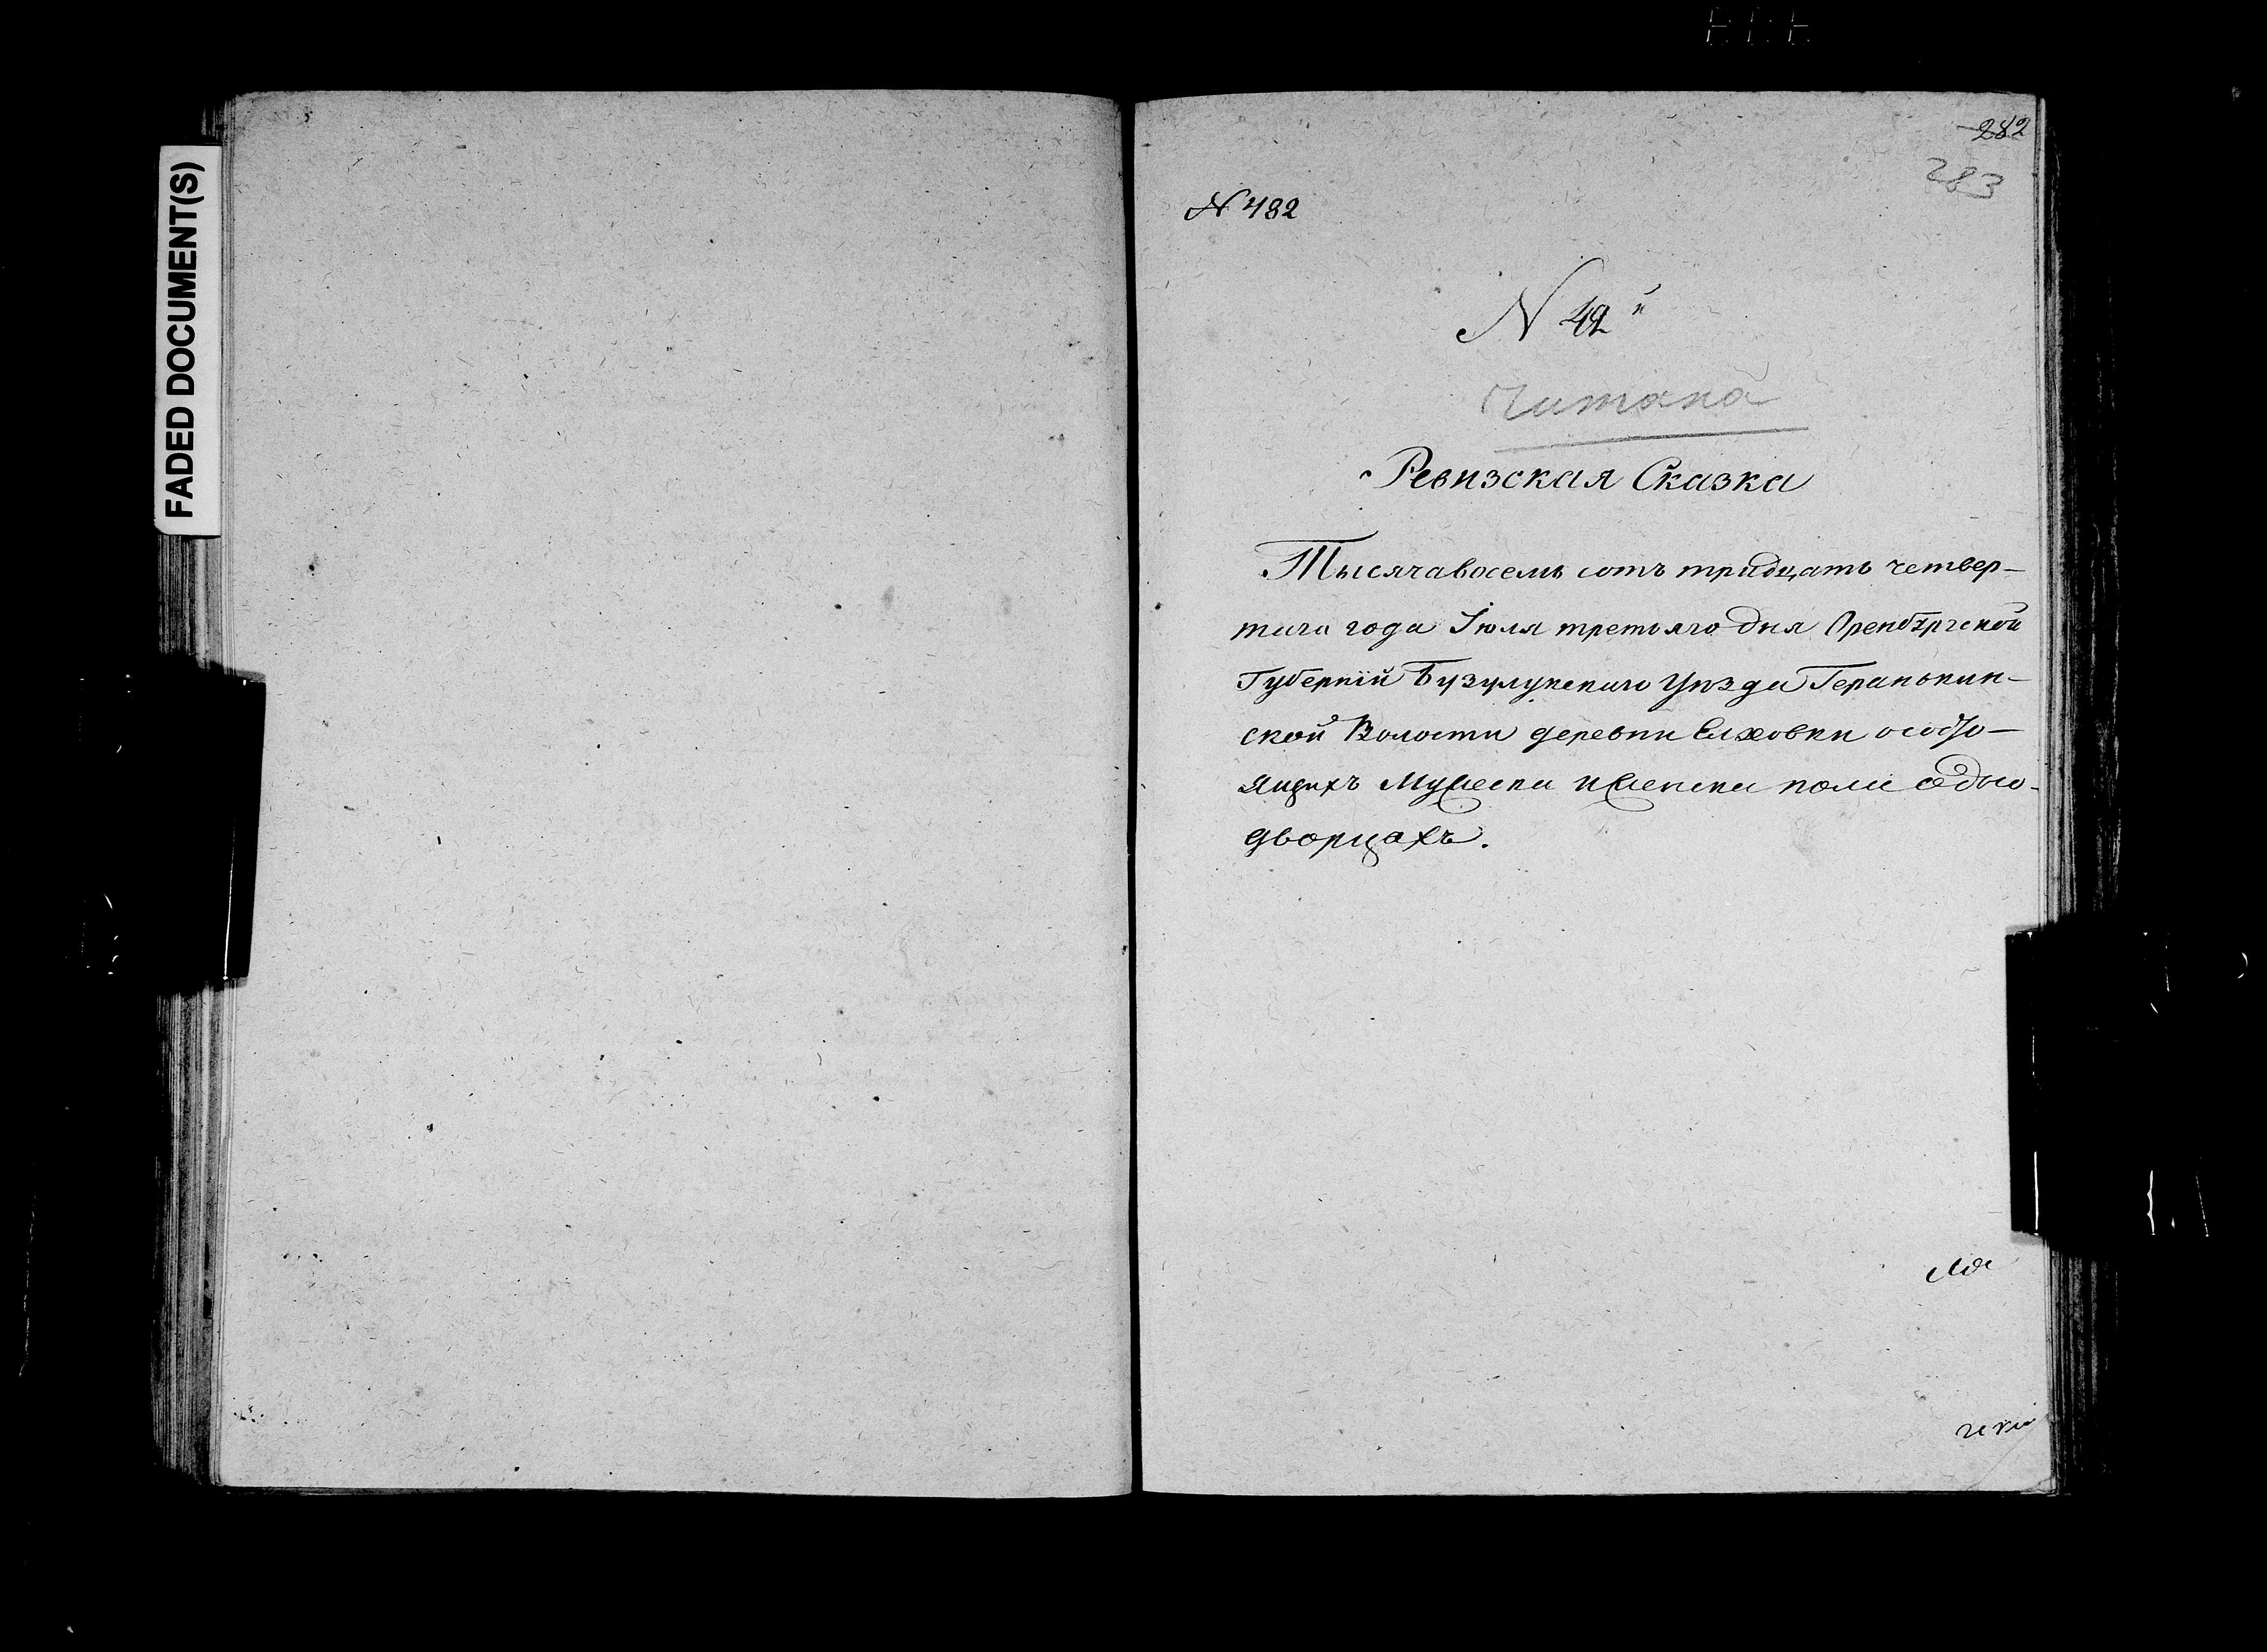 FADED DOCUMENT(S)
282
283
N 482
N 42й
Читана
Ревизская Сказка
Тысячавосемь сотъ тридцать четвер-
таго года Іюля третьяго дня Оренбургской
Губерніи Бузулукскаго Уѣзда Геранькин-
ской Волости деревни Елховки о состо-
ящихъ Мужеска и женска пола
дворцахъ.